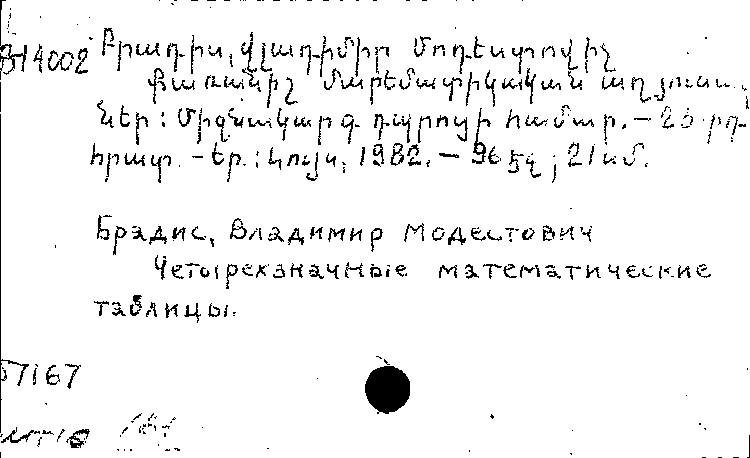 814002 Բրադիս, Վլադիմիր Մոդեստովիչ
Քառանիշ մաթեմատիկական աղյուսակ
ներ: Միջնակարգ դպրոցի համար. – 23-րդ
հրատ. – Եր.: Լույս, 1982. – 96 էջ; 21 սմ.
Брадис, Владимир Модестович
Четырехзначные математические
таблицы.
57167